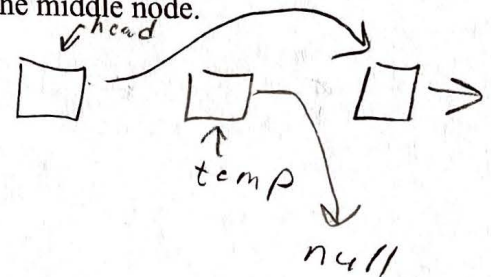 he middle node.
head
temp
null